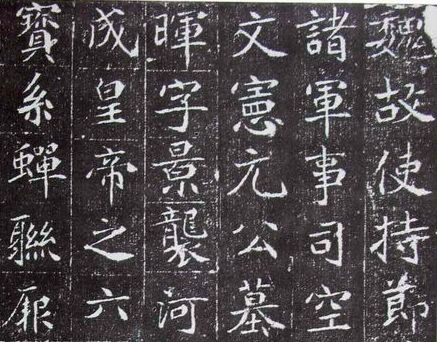 魏故使持節
諸軍事司空
文憲元公墓
暉字景襲河
成皇帝之六
寶系蟬聯厥